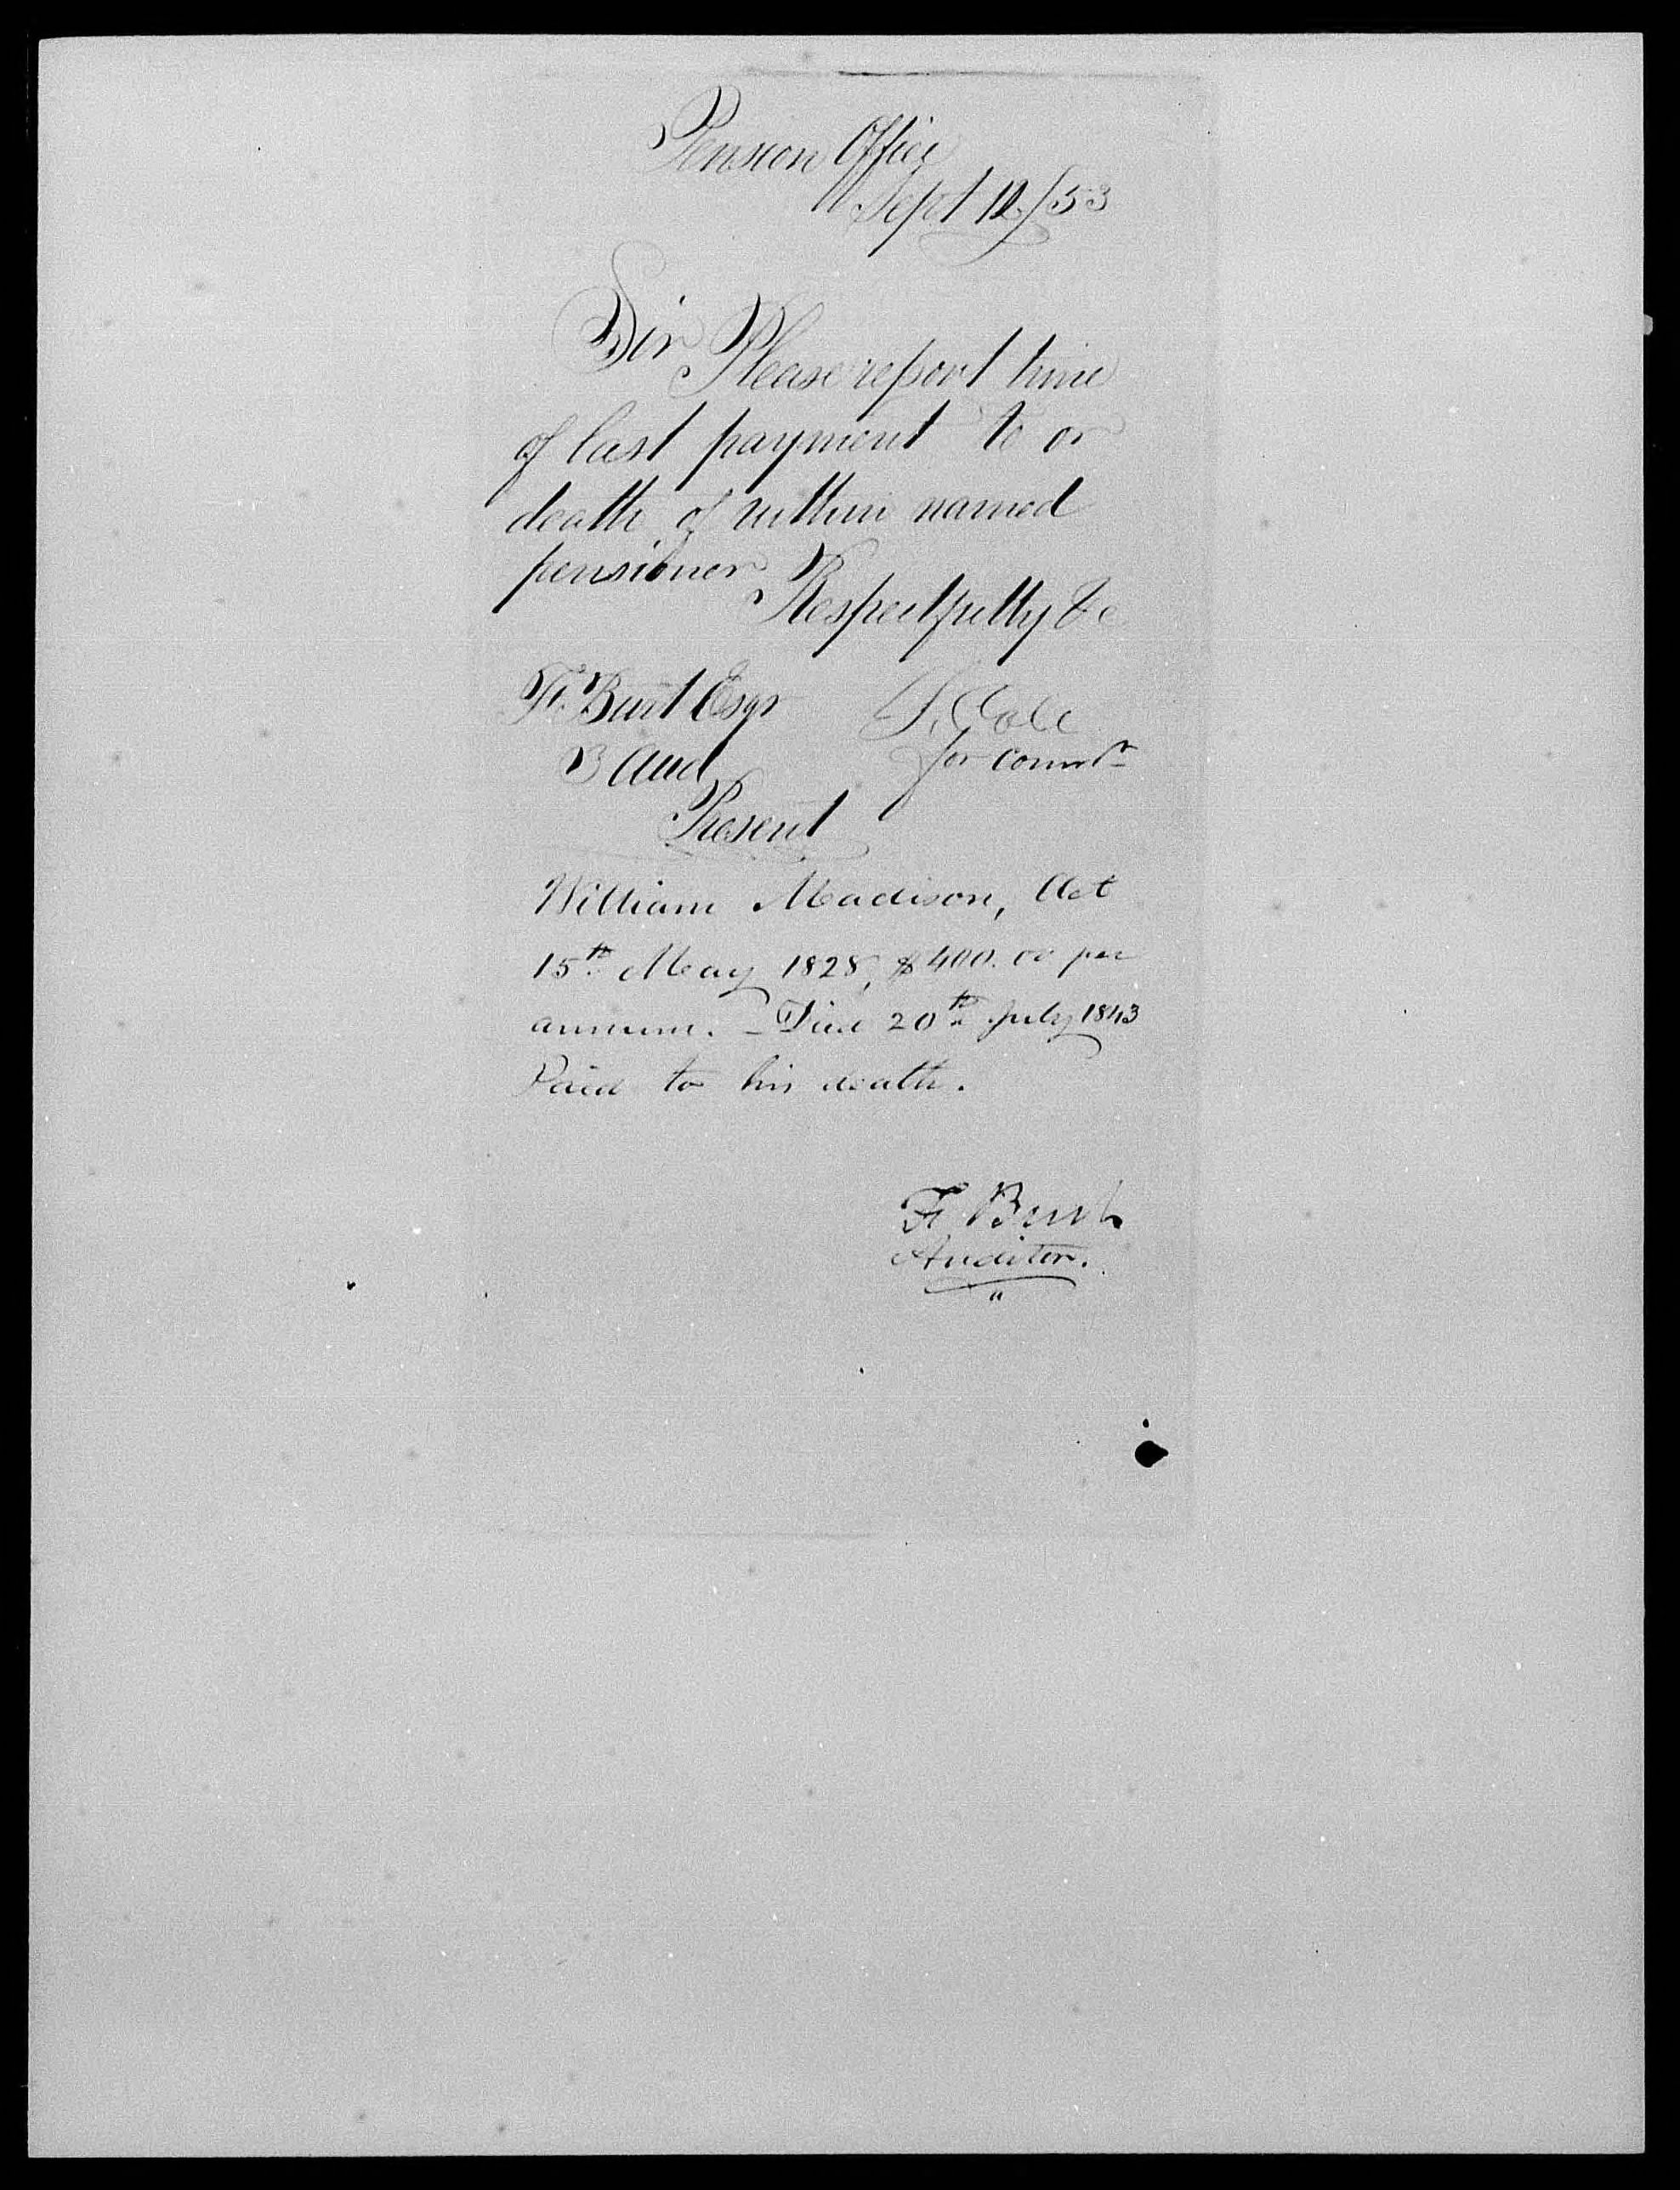 Pension Office
Sept 12/53
Sir
Please report time
of last payment to or
death of within named
pensioner
Respectfully &c
F. Burt Esqr S. Cole
3 Aud for Commr
Present
William Madison, Act
15th May 1828, $400.00 per
annum. – Died 20th July 1843
Paid to his death.
F. Burt
Auditor.
"